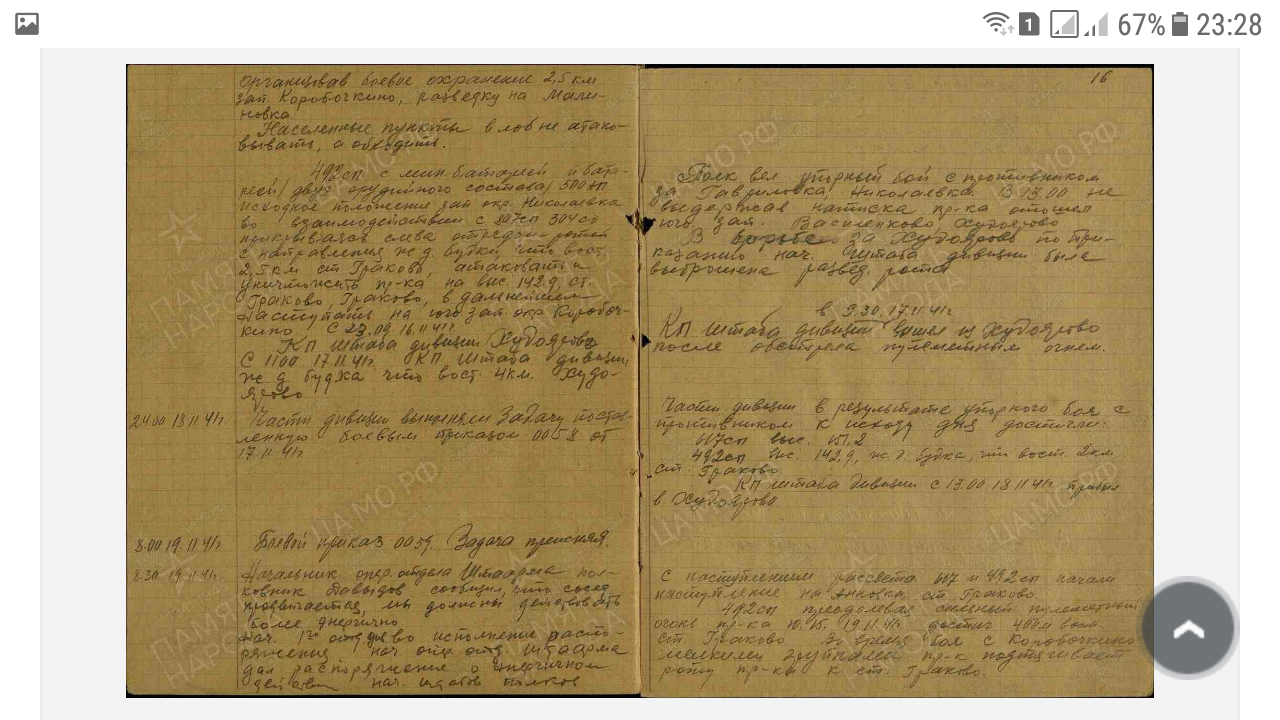 1 67% 23:28
организовав боевое охранение 2,5 км
зап Коробочкино, разведку на Мали-
новка.
Населенные пункты в лоб не атако-
вывать, а обходить.
492сп с мин батареей и бата-
реей /двух орудийного состава/
исходное положение зап окр. Николаевка
во взаимодействии с 807сп 304сд
прикрываясь слева отрядом-ротой
с направления ж д. будка, что вост.
2,5 км ст Граково, атаковать и
уничтожить пр-ка на выс 142.9, ст.
Граково, Граково, в дальнейшем
наступать на юго зап окр Коробоч-
кино. С 23.09 16 11 41г.
КП штаба дивизии Худоярово
С 1100 17 11 41г. КП штаба дивизии
ж д будка что вост. 4км. Худо-
ярово
24.00 18 11 41г. Части дивизии выполняли задачу постав-
ленную боевым приказом 0058 от
17 11 41г
8.00 19. 11 41г Боевой приказ 0059. Задача прежняя.
8.30 19 11 41г. Начальник опер. отдела Штаарма пол-
ковник Давыдов сообщил, что сосед
продвигается, мы должны действовать
более энергично
Нач. 1го отд во исполнение распо-
ряжения нач опер. отд Штаарма
дал распоряжение о энергичном
действии нач. штабов полков
16
Полк вел упорный бой с противником
за Гавриловка, Николаевка. В 13.00 не
выдержав натиска пр-ка отошел
юго. зап. Василенково, Худоярово
В борьбе за Худоярово по при-
казанию нач. Штаба дивизии была
выброшена развед. рота
в 9.30. 17.11 41г
КП штаба дивизии вышел из Худоярово
после обстрела пулеметным огнем.
Части дивизии в результате упорного боя с
противником к исходу дня достигли:
607сп выс. 151.2
492сп выс. 142,9, ж. д. будка, что вост. 2км
ст. Граково
КП штаба дивизии с 13.00 18 11 41г прибыл
в Худоярово
С наступлением рассвета 607 и 492 сп начали
наступление на Анновка, ст. Граково.
492сп преодолевая сильный пулеметный
огонь пр-ка 10. 15. 19 11 41г. достиг 400м вост
ст Граково. Во время боя с Коробочкино
мелкими группами пр-к подтягивает
роту пр-ка к ст. Граково.